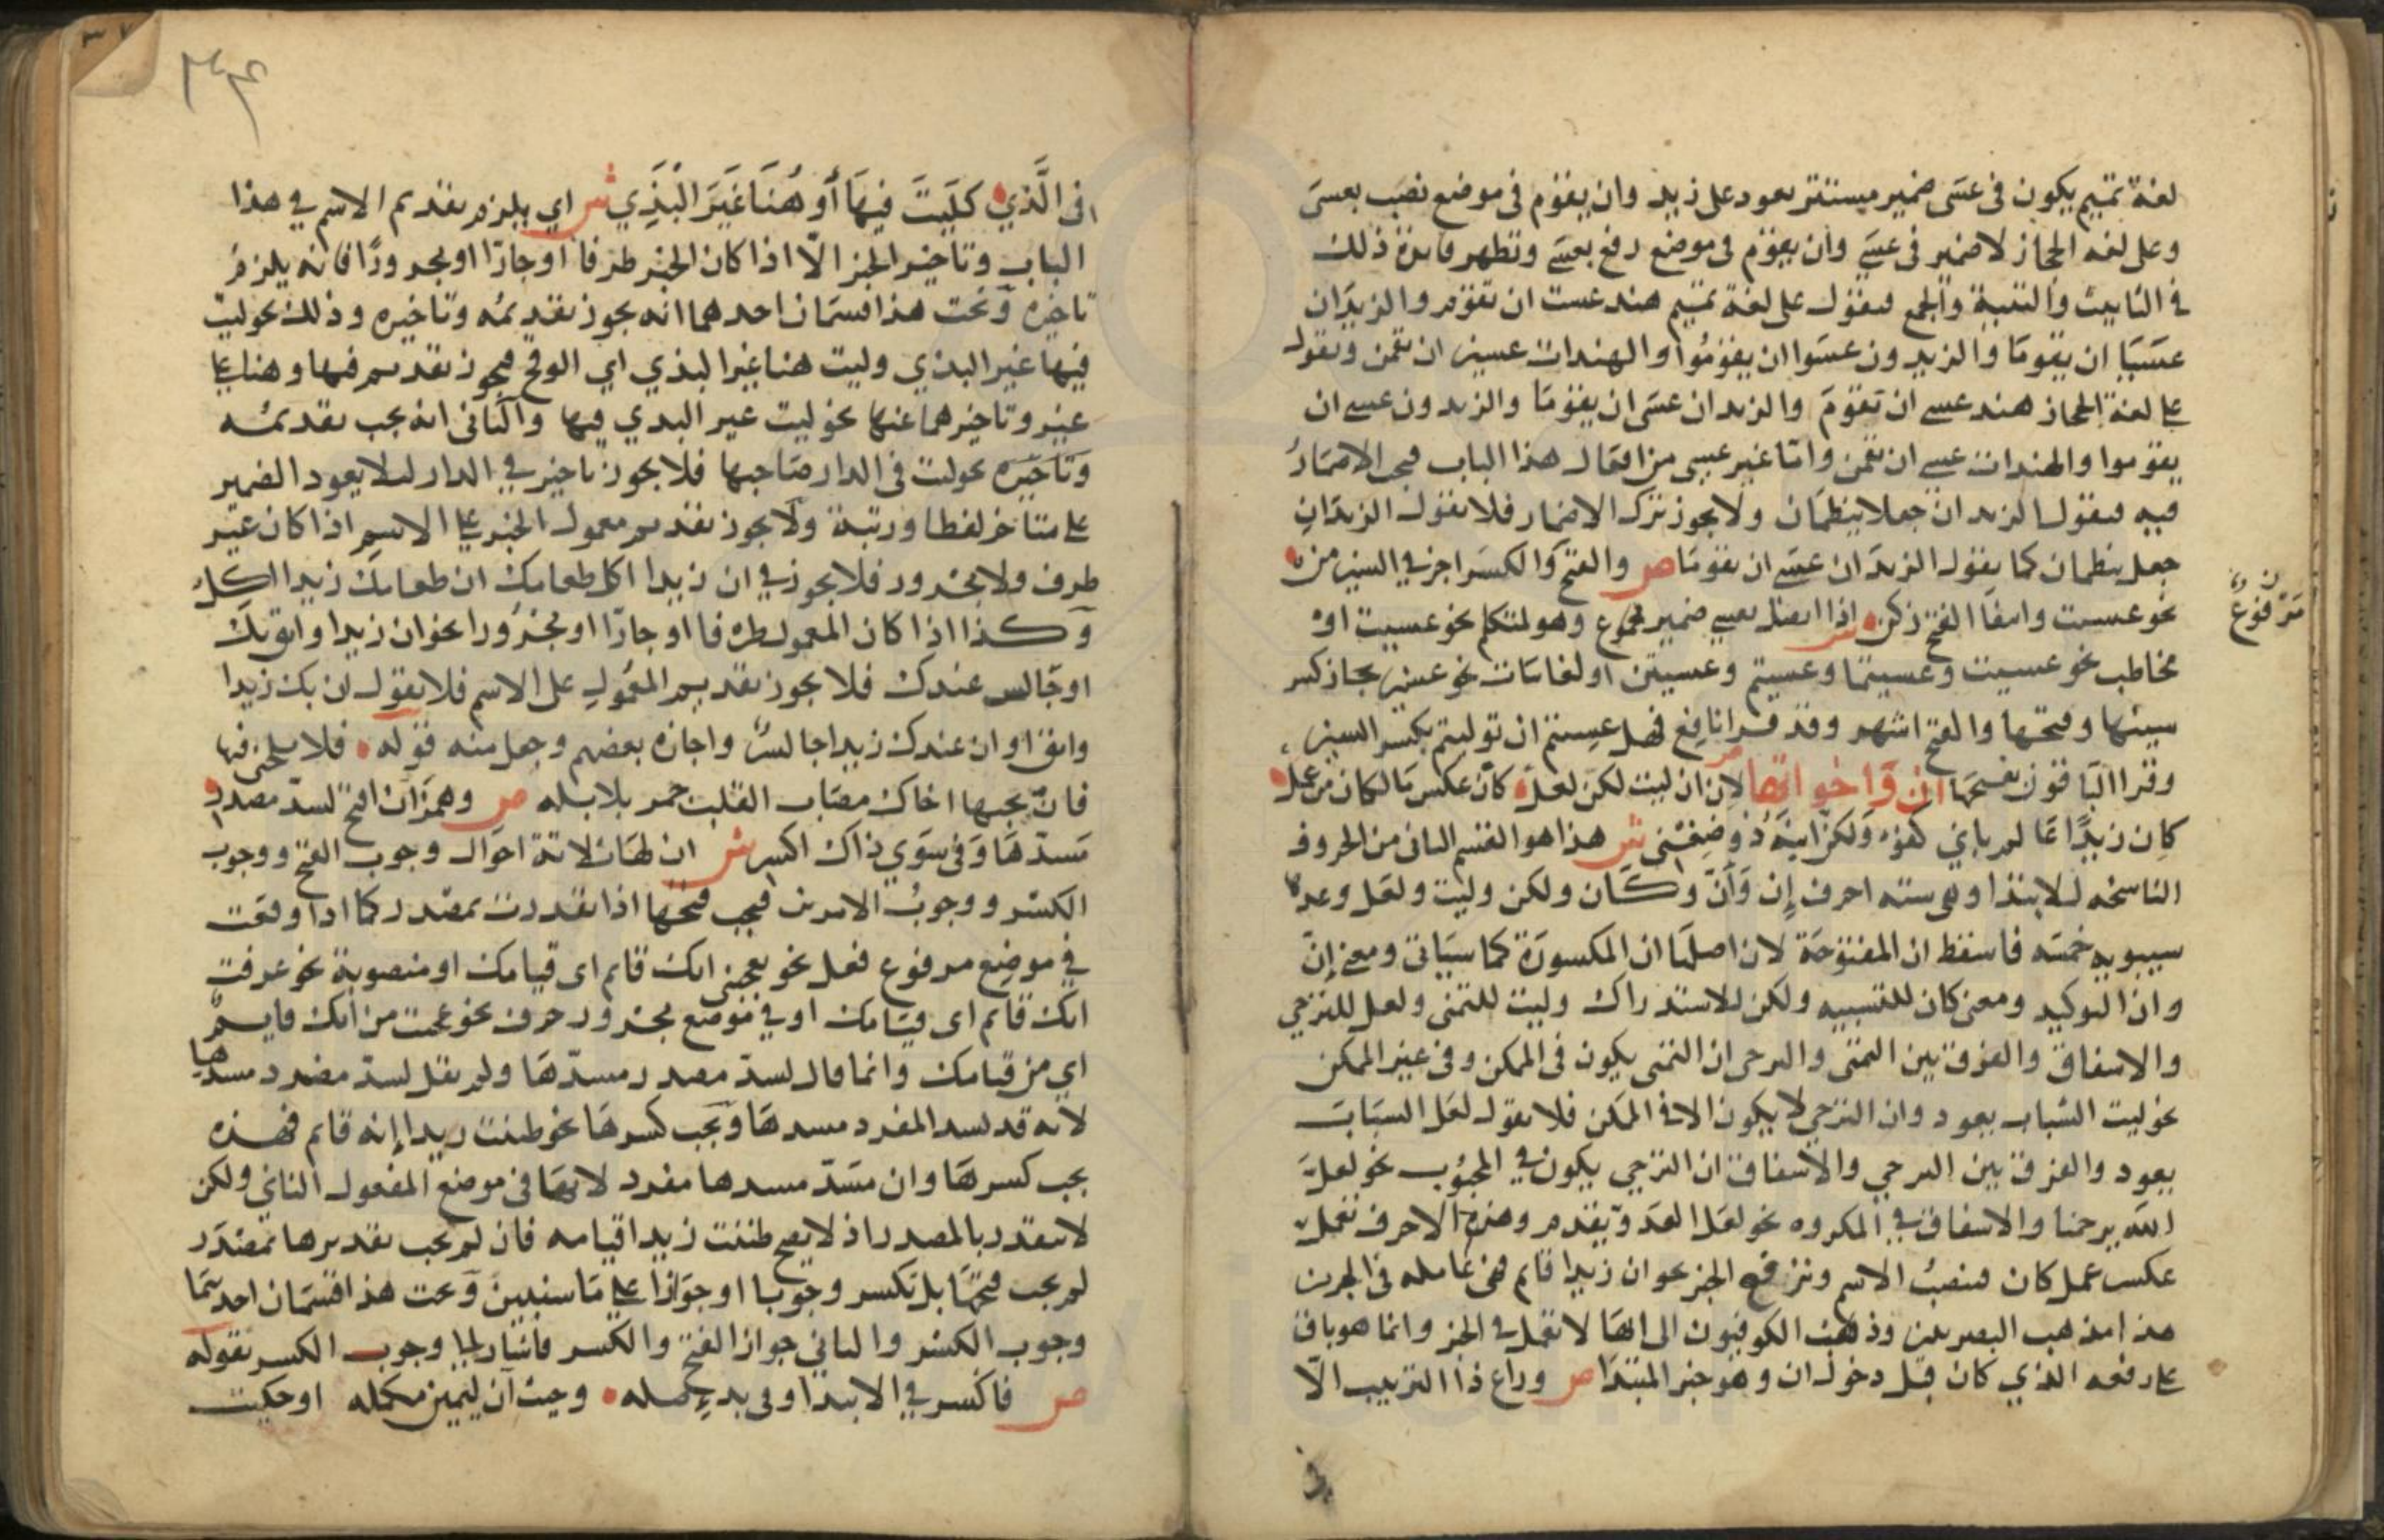 لغة تميم يكون في عسى ضمير مستتر يعود على زيد وان يقوم في موضع نصب بعسى
وعلى لغه الحجاز لا ضمير في عسى وان يقوم في موضع رفع بعسى وتظهر فائدة ذلك
في التانيث والتثنية والجمع فتقول على لغة تميم هند عست ان تقوم والزيدان
عسيا ان يقوما والزيدون عسوا ان يقوموا والهندات عسين ان يقمن وتقول
على لغة الحجاز هند عسى ان تقوم والزيدان عسى ان يقوما والزيدون عسى ان
يقوموا والهندات عسى ان يقمن واما غير عسى من افعال هذا الباب فيجب الاضمار
فيه فتقول الزيدان جعلا ينظمان ولا يجوز ترك الاضمار فلا تقول الزيدان
جعل ينظمان كما يقول الزيدان عسى ان يقوما ص والفتح والكسر اجز في السين من
نحو عسيت وانتقا الفتح زكن ش اذا اتصل بعسى ضمير مرفوع وهو لمتكلم نحو عسيت او
مرفوع
مخاطب نحو عسيت وعسيتما وعسيتم وعسيتن او لغائبات نحو عسين جاز كسر
سينها وفتحها والفتح اشهر وقد قرا نافع فهل عسيتم ان توليتم بكسر السين
وقرا الباقون بفتحها ان واخواتها ص لان ان ليت لكن لعل كان عكس ما لكان من عمل
كان زيدا عالم باني كفؤ ولكن ابنه ذو ضغن ش هذا هو القسم الثاني من الحروف
الناسخه للابتدا وهي سته احرف إن وأن وكان ولكن وليت ولعل وعدها
سيبويه خمسه فاسقط ان المفتوحة لان اصلها ان المكسورة كما سياتي ومعنى إن
وان التوكيد ومعنى كان للتشبيه ولكن للاستدراك وليت للتمني ولعل للترجي
والاشفاق والفرق بين التمني والترجي ان التمني يكون في الممكن وفي غير الممكن
نحو ليت الشباب يعود وان الترجي لا يكون الا في الممكن فلا تقول لعل الشباب
يعود والفرق بين الترجي والاشفاق ان الترجي يكون في المحبوب نحو لعل
الله يرحمنا والاشفاق في المكروه نحو لعل العدو يقدم وهذه الاحرف تعمل
عكس عمل كان فتنصب الاسم وترفع الخبر نحو ان زيدا قايم فهي عامله في الجزين
هذا مذهب البصريين وذهب الكوفيون الى انها لا تعمل في الخبر وانما هو باق
على رفعه الذي كان قبل دخول ان وهو خبر المبتدا ص وراع ذا الترتيب الا
في
في الذي كليت فيها أو هنا غير البذي ش اي يلزم تقديم الاسم في هذا
الباب وتاخير الخبر الا اذا كان الخبر ظرفا او جارا او مجرورا فانه يلزم
تاخيره وتحت هذا قسمان احدهما انه يجوز تقديمه وتاخيره وذلك نحو ليت
فيها غير البذي وليت هنا غير البذي اي الوقح فيجوز تقديم فيها وهنا على
غير وتاخيرهما عنها نحو ليت غير البذي فيها والثاني انه يجب تقديمه
وتاخيره نحو ليت في الدار صاحبها فلا يجوز تاخير في الدار لئلا يعود الضمير
على متاخر لفظا ورتبة ولا يجوز تقديم معمول الخبر على الاسم اذا كان غير
ظرف ولا مجرور فلا يجوز في ان زيدا اكل طعامك ان طعامك زيدا اكل
وكذا اذا كان المعمول ظرفا او جارا او مجرورا نحو ان زيدا واثق بك
او جالس عندك فلا يجوز تقديم المعمول على الاسم فلا تقول ان بك زيدا
واثق او ان عندك زيدا جالس واجازه بعضهم وجعل منه قوله فلا تلحني فيها
فان بحبها اخاك مصاب القلب جم بلابله ص وهمز ان افتح لسد مصدر
مسدها وفي سوى ذاك اكسر ش ان لها ثلاثة احوال وجوب الفتح ووجوب
الكسر ووجوب الامرين فيجب فتحها اذا تقدرت بمصدر كما اذا وقعت
في موضع مرفوع فعل نحو يعجبني انك قايم اي قيامك او منصوبة نحو عرفت
انك قايم اي قيامك او في موضع مجرور حرف نحو عجبت من انك قايم
اي من قيامك وانما قال لسد مصدر مسدها ولم يقل لسد مفرد مسدها
لانه قد يسد المفرد مسدها ويجب كسرها نحو ظننت زيدا إنه قايم فهذه
يجب كسرها وان سد مسدها مفرد لانها في موضع المفعول الثاني ولكن
لا تقدر بالمصدر اذ لا يصح ظننت زيدا قيامه فان لم يجب تقديرها بمصدر
لم يجب فتحها بل تكسر وجوبا او جوازا على ما سنبين وتحت هذا قسمان احدهما
وجوب الكسر والثاني جواز الفتح والكسر فاشار الى وجوب الكسر بقوله
ص فاكسر في الابتدا وفي بدء صله وحيث ان ليمين مكمله او حكيت